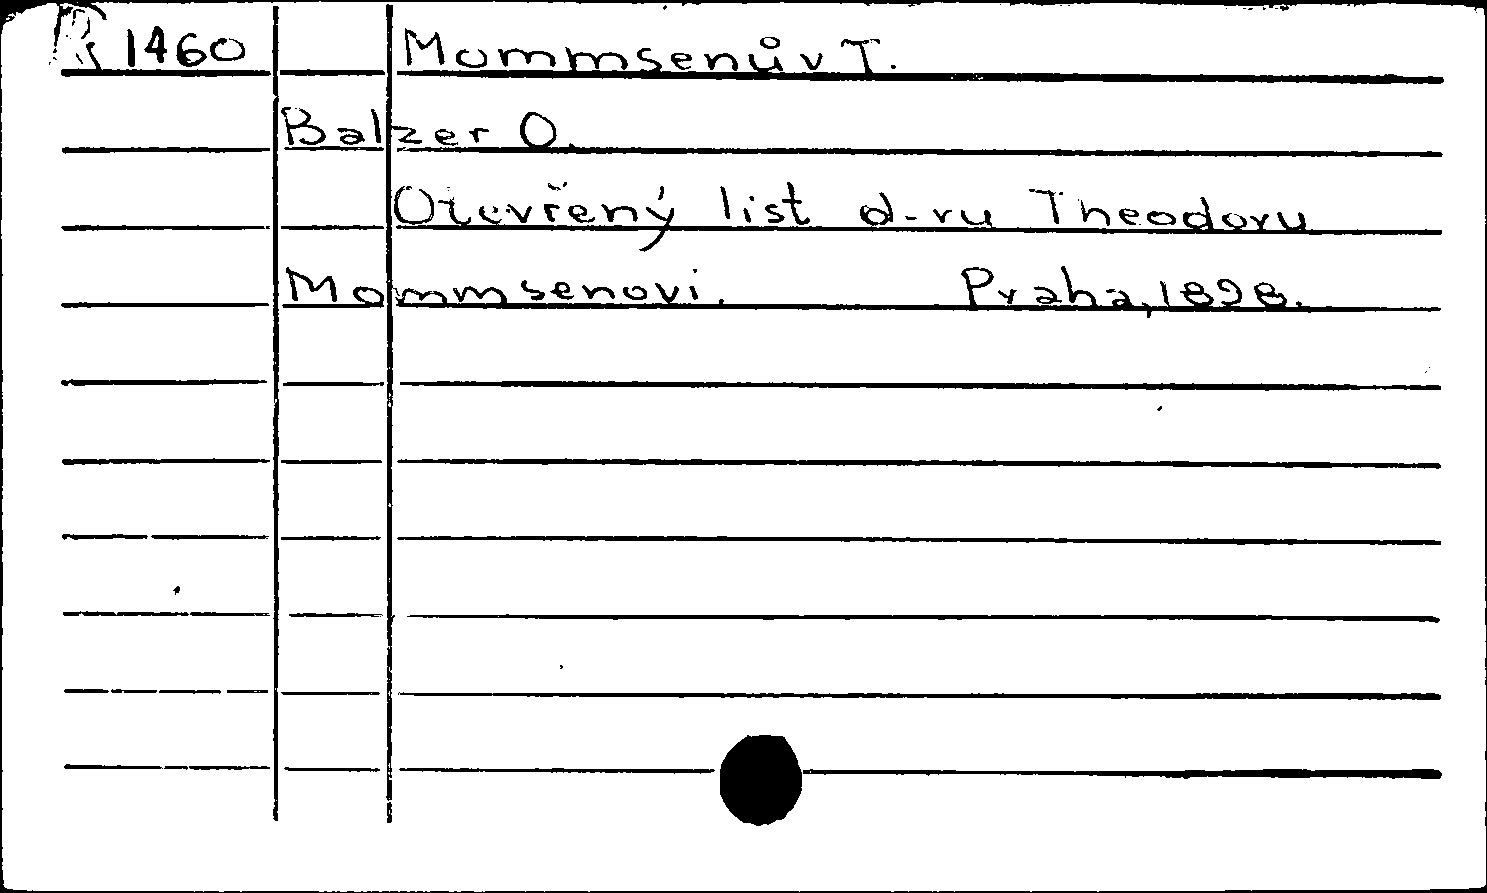 1460 Mommsenův T.
Balzer O.
Otevřený list d-ru Theodoru
Mommsenovi. Praha, 1898.